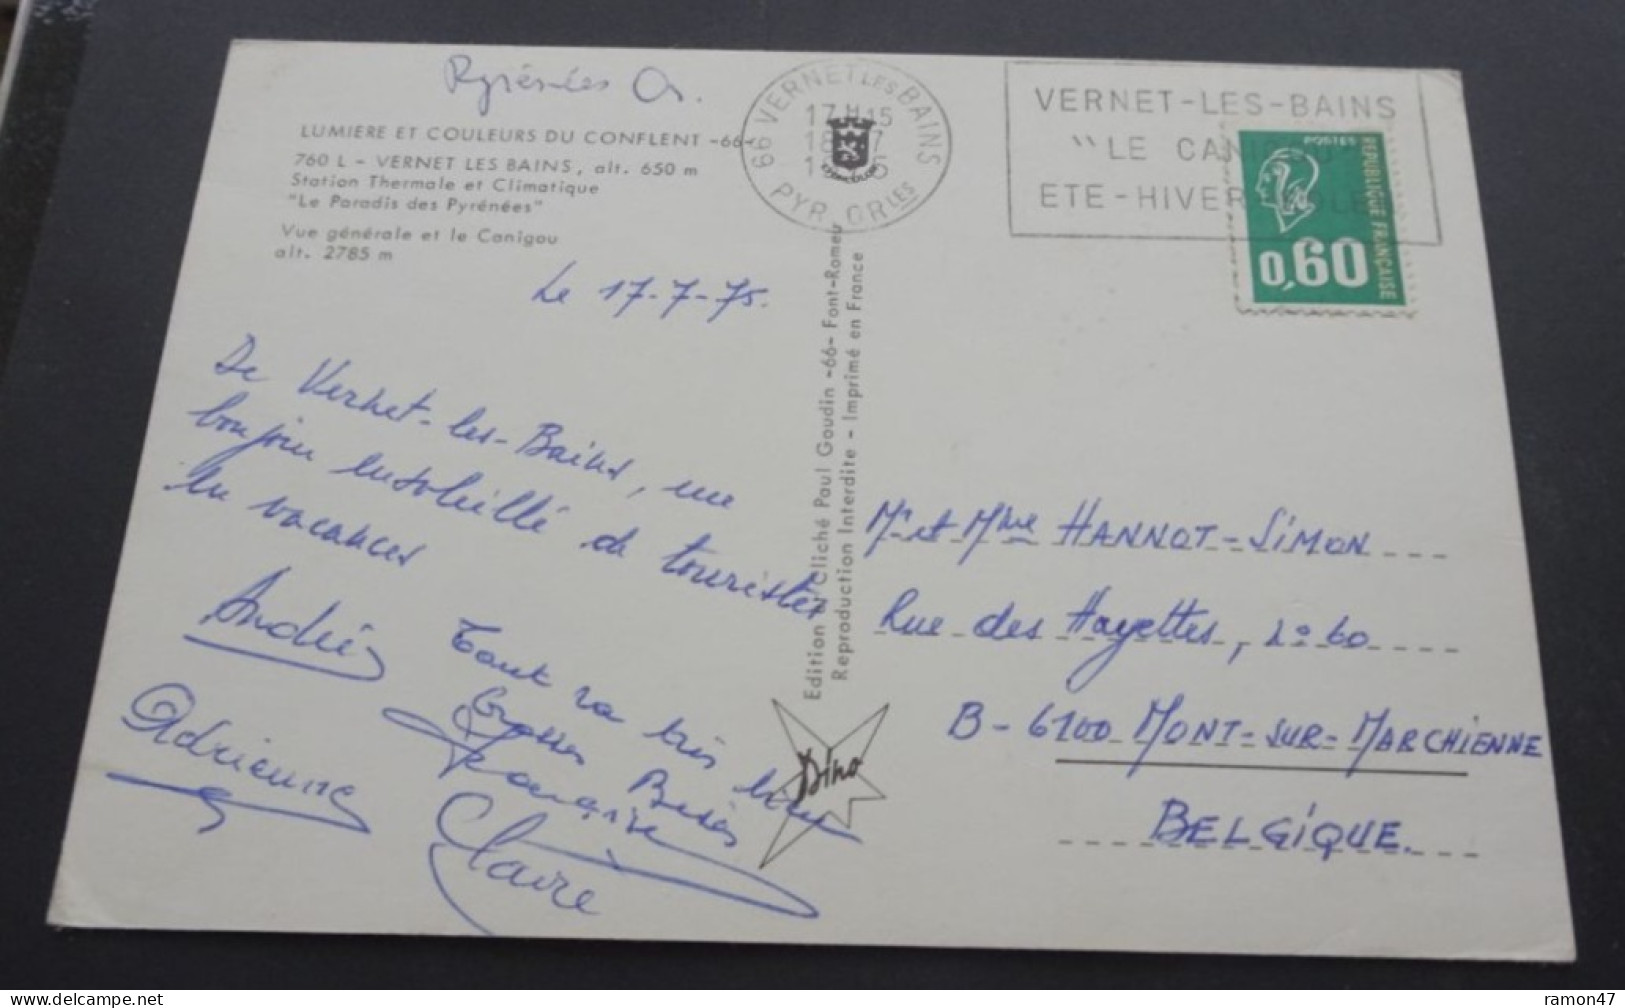 Pyrénées Or.
LUMIERE ET COULEURS DU CONFLENT -66-
760 L - VERNET LES BAINS, alt. 650 m
Station Thermale et Climatique
"Le Paradis des Pyrénées"
Vue générale et le Canigou
alt. 2785 m
66 VERNET LES BAINS
17H15
PYR. ORLES
VERNET-LES-BAINS
"LE CANIGOU
ETE-HIVER
POSTES
REPUBLIQUE FRANÇAISE
0,60
Le 17-7-75.
De Vernet-les-Bains, un
bonjour ensoleillé de touristes
en vacances
André
Tout va très bien
Grosses Bises
Françoise
Adrienne
Claire
Edition et Cliché Paul Goudin -66- Font-Romeu
Reproduction Interdite - Imprimé en France
Dino
Mr et Mme HANNOT-SIMON
Rue des Hayettes, 60
B-6100 MONT-SUR-MARCHIENNE
BELGIQUE.
ramon47